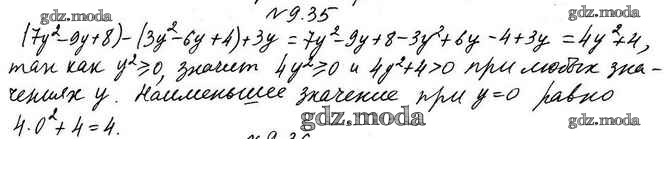 №9.35
(7y²-9y+8)-(3y²-6y+4)+3y=7y²-9y+8-3y²+6y-4+3y=4y²+4,
gdz.moda
так как y²≥0, значит 4y²≥0 и 4y²+4>0 при любых зна-
чениях y. Наименьшее значение при y=0 равно
gdz.moda
4·0²+4=4.
gdz.moda
gdz.moda